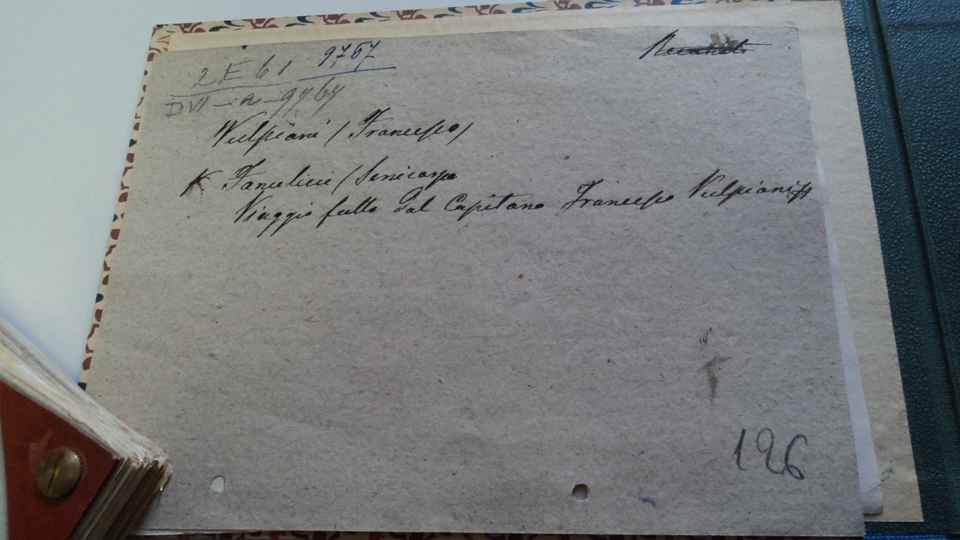 2 E 6 1 9767
DVI - a - 9767
Vulpiani (Francesco)
K Fanelicii (Senicarpo
Viaggio fatto dal Capitano Francesco Vulpiani
196